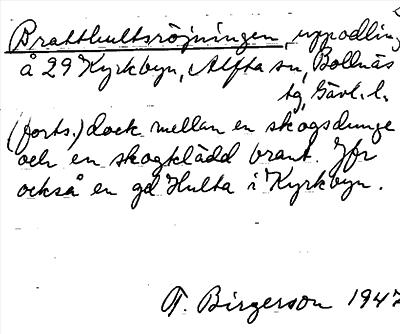 Bratthultsröjningen, uppodling
å 29 Kyrkbyn, Alfta sn, Bollnäs
tg, Gävl. l.
(forts.) dock mellan en skogsdunge
och en skogklädd brant. Jfr
också en gd Hulta i Kyrkbyn.
T. Birgerson 1947